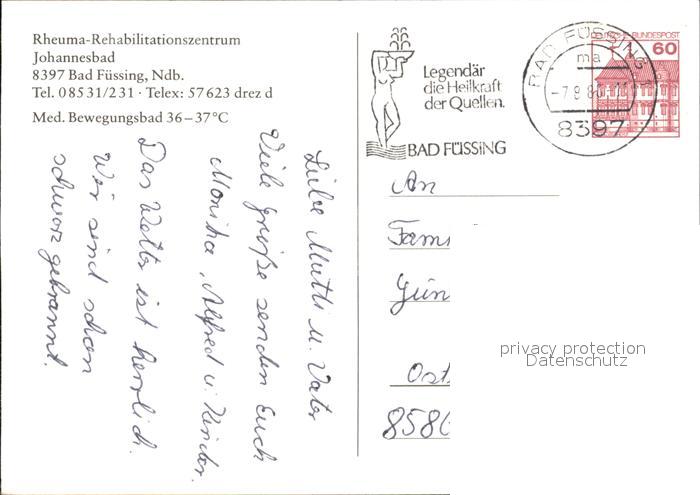 Rheuma-Rehabilitationszentrum
Johannesbad
8397 Bad Füssing, Ndb.
Tel. 08531/231 · Telex: 57623 drez d
Med. Bewegungsbad 36–37°C
Liebe Mutti u. Vater
Viele Grüße senden Euch
Monika, Alfred u. Kinder.
Das Wetter ist herrlich.
Wir sind schon
schwarz gebrannt.
Legendär
die Heilkraft
der Quellen.
BAD FÜSSING
BAD FÜSSING 1
ma
8397
DEUTSCHE BUNDESPOST
60
An
Fami
Gün
Ost
858
privacy protection
Datenschutz